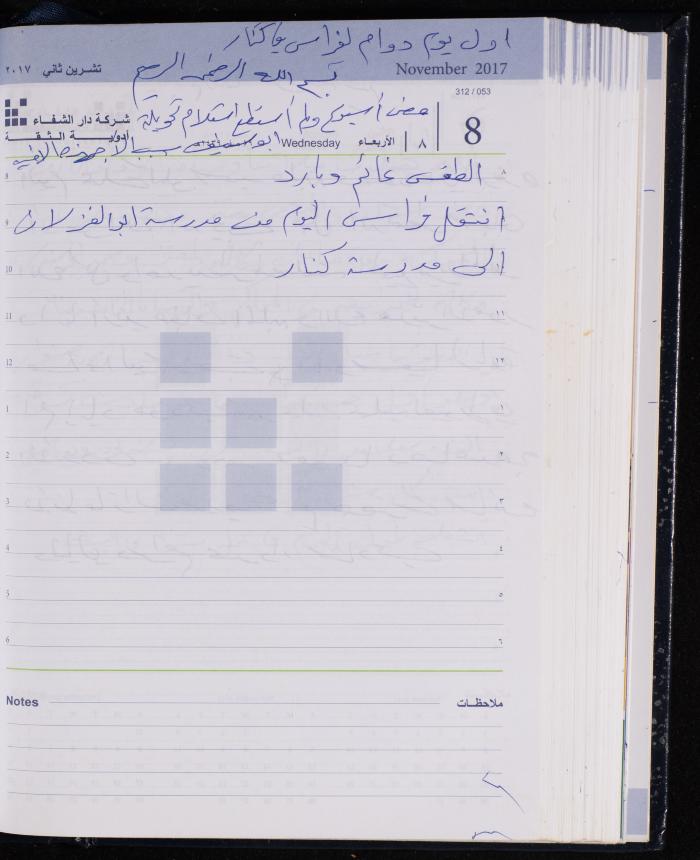 اول يوم دوام لفراس في كنار
بسم الله الرحمن الرحيم
تشرين ثاني ٢٠١٧
November 2017
312 / 053
مضى أسبوع ولم أستطع استلام تحويلة
شركة دار الشفاء
أدوية الثقة
ابو سيف بسبب الاجهزة الامنية
Wednesday
الأربعاء
٨
8
الطقس غائم وبارد
انتقل فراس اليوم من مدرسة ابو الغزلان
الى مدرسة كنار
8 ٨
9
10
11 ١١
12 ١٢
1 ١
2 ٢
3 ٣
4 ٤
5 ٥
6 ٦
Notes ملاحظات